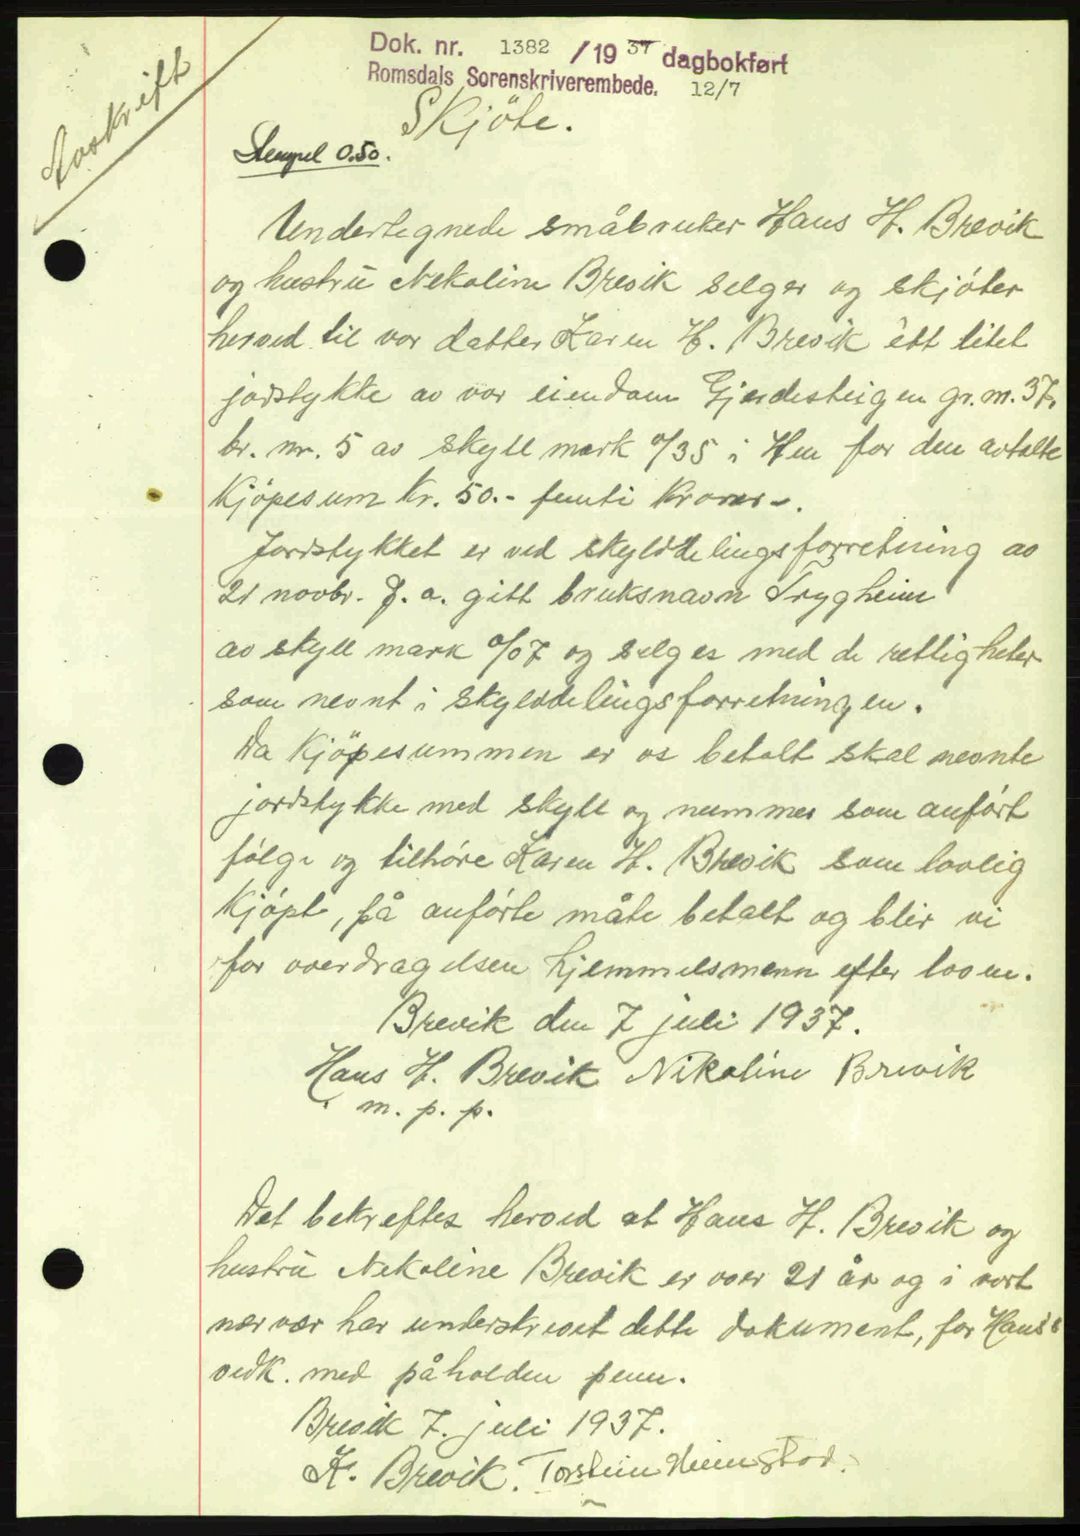 Avskrift
Dok. nr. 1382 /1937 dagbokført
Romsdals Sorenskriverembede. 12/7
Skjöte.
Stempel 0.50.
Undertegnede småbruker Hans H. Brevik
og hustru Nekoline Brevik selger og skjöter
herved til vor datter Karen H. Brevik ett litet
jordstykke av vor eiendom Gjerdesteigen gr. nr. 37,
br. nr. 5 av skyll mark 0/35 i Hen for den avtalte
Kjöpesum Kr. 50.- femti Kroner-.
Jordstykket er ved skylddelingsforretning av
21 novbr. f. a. gitt bruksnavn Trygheim
av skyll mark 0/07 og selges med de rettigheter
som nevnt i skylddelingsforretningen.
Da Kjöpesummen er os betalt skal nevnte
jordstykke med skyll og nummer som anfört
fölge og tilhöre Karen H. Brevik som lovlig
Kjöpt, på anförte måte betalt og blir vi
for overdragelsen hjemmelsmenn efter loven.
Brevik den 7 juli 1937.
Hans H. Brevik Nikoline Brevik
m. p. p.
Det bekreftes herved at Hans H. Brevik og
hustru Nekoline Brevik er over 21 år og i vort
nærvær har underskrevet dette dokument, for Hans's
vedk. med påholden penn.
Brevik 7. juli 1937.
K. Brevik. Torstein Heimstad.